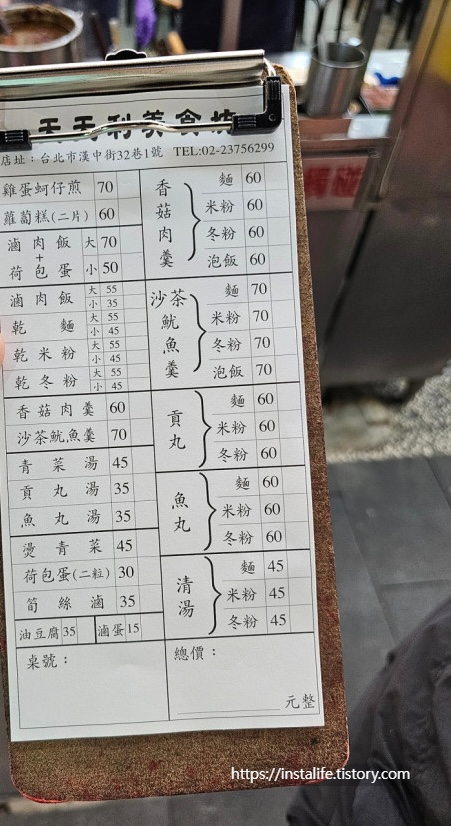 天天利美食坊
店址：台北市漢中街32巷1號 TEL:02-23756299
雞蛋蚵仔煎 70
蘿蔔糕(二片) 60
滷肉飯+荷包蛋 大 70
小 50
滷肉飯 大 55
小 35
乾麵 大 55
小 45
乾米粉 大 55
小 45
乾冬粉 大 55
小 45
香菇肉羹 60
沙茶魷魚羹 70
青菜湯 45
貢丸湯 35
魚丸湯 35
燙青菜 45
荷包蛋(二粒) 30
筍絲滷 35
油豆腐 35 滷蛋 15
桌號：
香菇肉羹
麵 60
米粉 60
冬粉 60
泡飯 60
沙茶魷魚羹
麵 70
米粉 70
冬粉 70
泡飯 70
貢丸
麵 60
米粉 60
冬粉 60
魚丸
麵 60
米粉 60
冬粉 60
清湯
麵 45
米粉 45
冬粉 45
總價：
元整
https://instalife.tistory.com